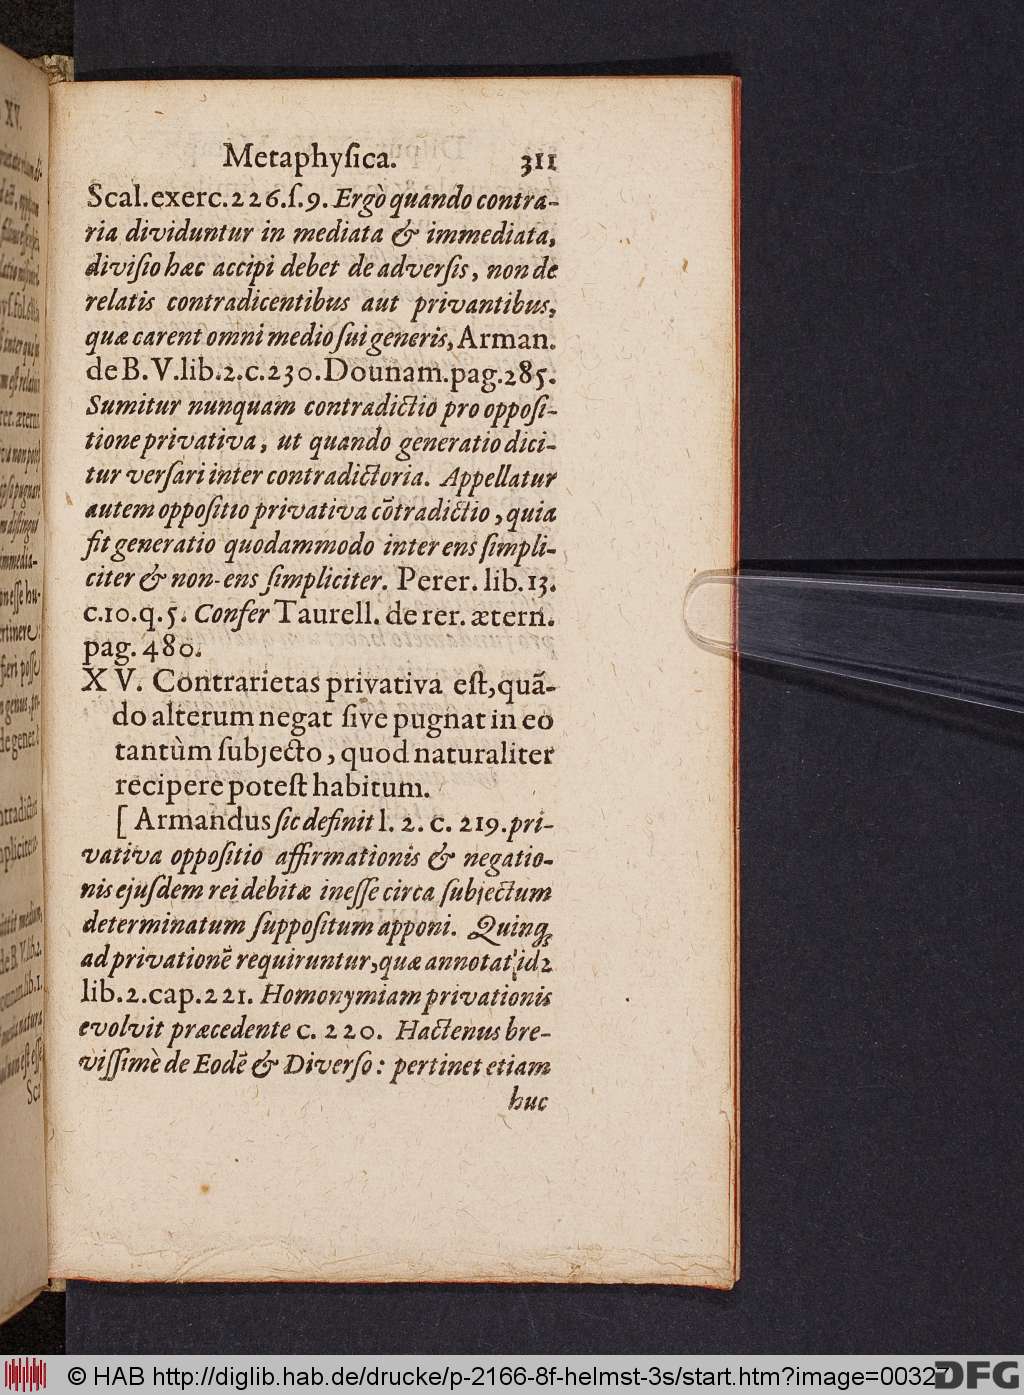 Metaphyſica. 311
Scal.exerc.226.ſ.9. Ergò quando contra-
ria dividuntur in mediata & immediata,
diviſio hæc accipi debet de adverſis, non de
relatis contradicentibus aut privantibus,
quæ carent omni medio ſui generis, Arman.
de B. V. lib.2.c.230. Dounam.pag.285.
Sumitur nunquam contradictio pro oppoſi-
tione privativa, ut quando generatio dici-
tur verſari inter contradictoria. Appellatur
autem oppoſitio privativa cõtradictio, quia
fit generatio quodammodo inter ens ſimpli-
citer & non-ens ſimpliciter. Perer. lib.13.
c.10.q.5. Confer Taurell. de rer. ætern.
pag. 480.
XV. Contrarietas privativa eſt, quã-
do alterum negat ſive pugnat in eo
tantùm ſubjecto, quod naturaliter
recipere poteſt habitum.
[ Armandus ſic definit l. 2. c. 219. pri-
vativa oppoſitio affirmationis & negatio-
nis ejuſdem rei debitæ ineſſe circa ſubjectum
determinatum ſuppoſitum apponi. Quinq;
ad privationẽ requiruntur, quæ annotat id
lib.2.cap.221. Homonymiam privationis
evolvit præcedente c. 220. Hactenus bre-
viſſimè de Eodẽ & Diverſo: pertinet etiam
huc
© HAB http://diglib.hab.de/drucke/p-2166-8f-helmst-3s/start.htm?image=00327
DFG